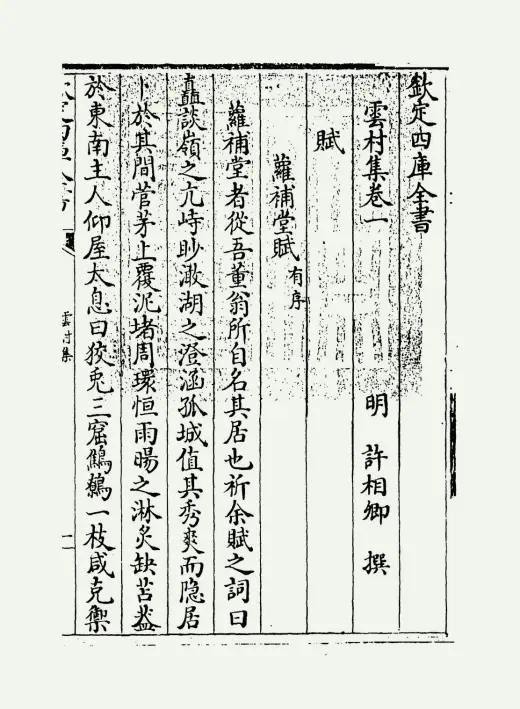 欽定四庫全書
雲村集卷一
明 許相卿 撰
賦
蘿補堂賦有序
蘿補堂者從吾董翁所自名其居也祈余賦之詞曰
矗談嶺之亢峙眇澉湖之澄涵孤城值其秀爽而隠居
卜於其間菅茅上覆泥堵周環恒雨暘之淋炙缺苫蓋
於東南主人仰屋太息曰狡兎三窟鷦鷯一枝咸克禦
雲村集
一